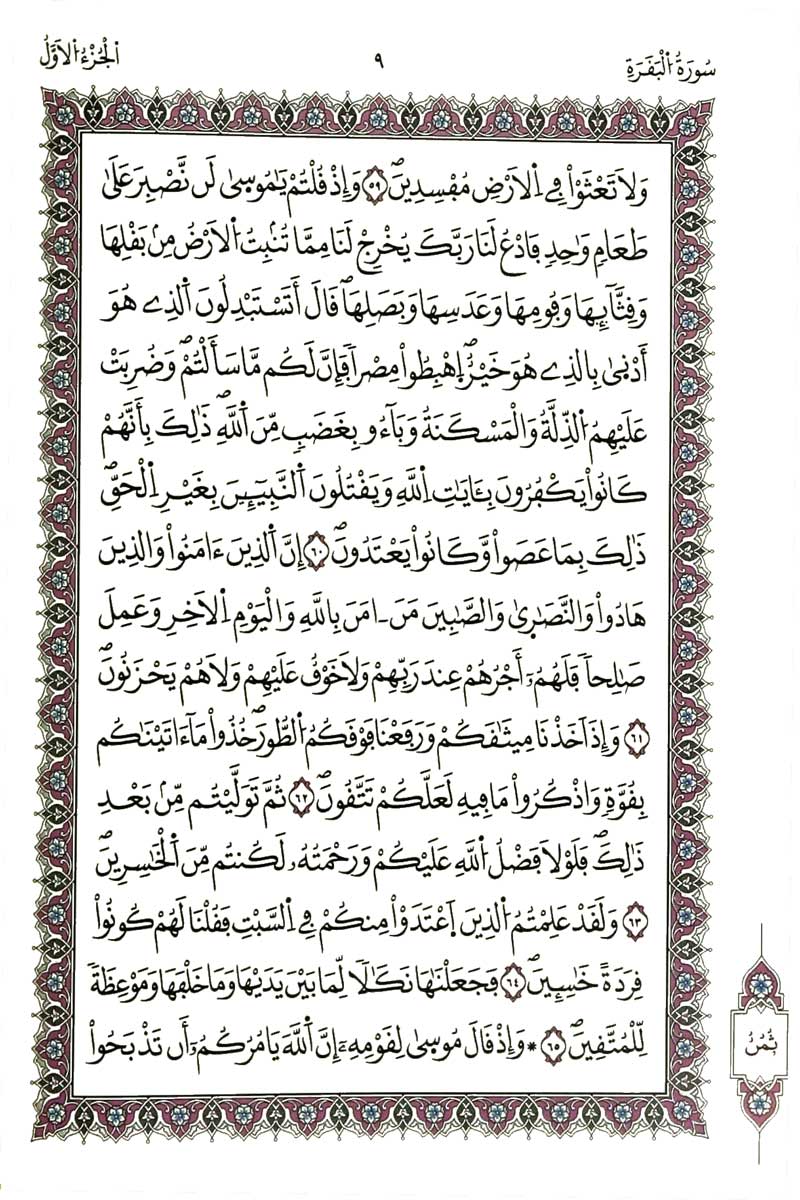 سُورَةُ الْبَقَرَةِ
٩
اَلْجُزْءُ اُلَاوَّلُ
وَلَا تَعْثَوْاْ فِے اِلَارْضِ مُفْسِدِينَۖ ۝٥٩ وَإِذْ قُلْتُمْ يَٰمُوسٜىٰ لَن نَّصْبِرَ عَلَىٰ
طَعَامٖ وَٰحِدٖ فَادْعُ لَنَا رَبَّكَ يُخْرِجْ لَنَا مِمَّا تُنۢبِتُ اُلَارْضُ مِنۢ بَقْلِهَا
وَقِثَّآئِهَا وَفُومِهَا وَعَدَسِهَا وَبَصَلِهَاۖ قَالَ أَتَسْتَبْدِلُونَ اَلذِے هُوَ
أَدْنٜىٰ بِالذِے هُوَ خَيْرٌۖ اِهْبِطُواْ مِصْراٗ فَإِنَّ لَكُم مَّا سَأَلْتُمْۖ وَضُرِبَتْ
عَلَيْهِمُ اُلذِّلَّةُ وَالْمَسْكَنَةُ وَبَآءُو بِغَضَبٖ مِّنَ اَللَّهِۖ ذَٰلِكَ بِأَنَّهُمْ
كَانُواْ يَكْفُرُونَ بِـَٔايَٰتِ اِللَّهِ وَيَقْتُلُونَ اَلنَّبِيٓـِٕينَ بِغَيْرِ اِلْحَقِّۖ
ذَٰلِكَ بِمَا عَصَواْ وَّكَانُواْ يَعْتَدُونَۖ ۝٦٠ إِنَّ اَلذِينَ ءَامَنُواْ وَالذِينَ
هَادُواْ وَالنَّصَٰرٜىٰ وَالصَّٰبِينَ مَنَ ـ امَنَ بِاللَّهِ وَالْيَوْمِ اِلَاخِرِ وَعَمِلَ
صَٰلِحاٗ فَلَهُمُۥٓ أَجْرُهُمْ عِندَ رَبِّهِمْ وَلَا خَوْفٌ عَلَيْهِمْ وَلَا هُمْ يَحْزَنُونَۖ
۝٦١ وَإِذَ اَخَذْنَا مِيثَٰقَكُمْ وَرَفَعْنَا فَوْقَكُمُ اُلطُّورَۖ خُذُواْ مَآ ءَاتَيْنَٰكُم
بِقُوَّةٖ وَاذْكُرُواْ مَا فِيهِ لَعَلَّكُمْ تَتَّقُونَۖ ۝٦٢ ثُمَّ تَوَلَّيْتُم مِّنۢ بَعْدِ
ذَٰلِكَۖ فَلَوْلَا فَضْلُ اُللَّهِ عَلَيْكُمْ وَرَحْمَتُهُۥ لَكُنتُم مِّنَ اَلْخَٰسِرِينَۖ
۝٦٣ وَلَقَدْ عَلِمْتُمُ اُلذِينَ اَعْتَدَوْاْ مِنكُمْ فِے اِلسَّبْتِ فَقُلْنَا لَهُمْ كُونُواْ
قِرَدَةً خَٰسِـِٕينَۖ ۝٦٤ فَجَعَلْنَٰهَا نَكَٰلاٗ لِّمَا بَيْنَ يَدَيْهَا وَمَا خَلْفَهَا وَمَوْعِظَةٗ
لِّلْمُتَّقِينَۖ ۝٦٥ * وَإِذْ قَالَ مُوسٜىٰ لِقَوْمِهِۦٓ إِنَّ اَللَّهَ يَامُرُكُمُۥٓ أَن تَذْبَحُواْ
ثُمُنُ